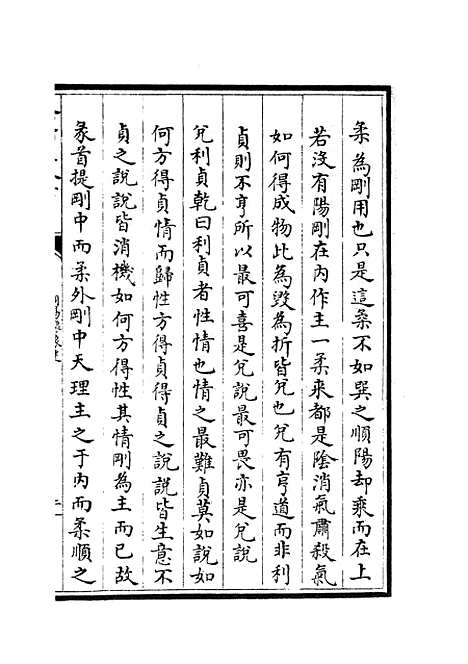 柔為剛用也只是這柔不如巽之順陽却乘而在上
若没有陽剛在內作主一柔來都是陰消氣肅殺氣
如何得成物此為毀為折皆兌也兌有亨道而非利
貞則不亨所以最可喜是兌說最可畏亦是兌說
兌利貞乾曰利貞者性情也情之最難貞莫如說如
何方得貞情而歸性方得貞得貞之說說皆生意不
貞之說說皆消機如何方得性其情剛為主而已故
彖首提剛中而柔外剛中天理主之于內而柔順之